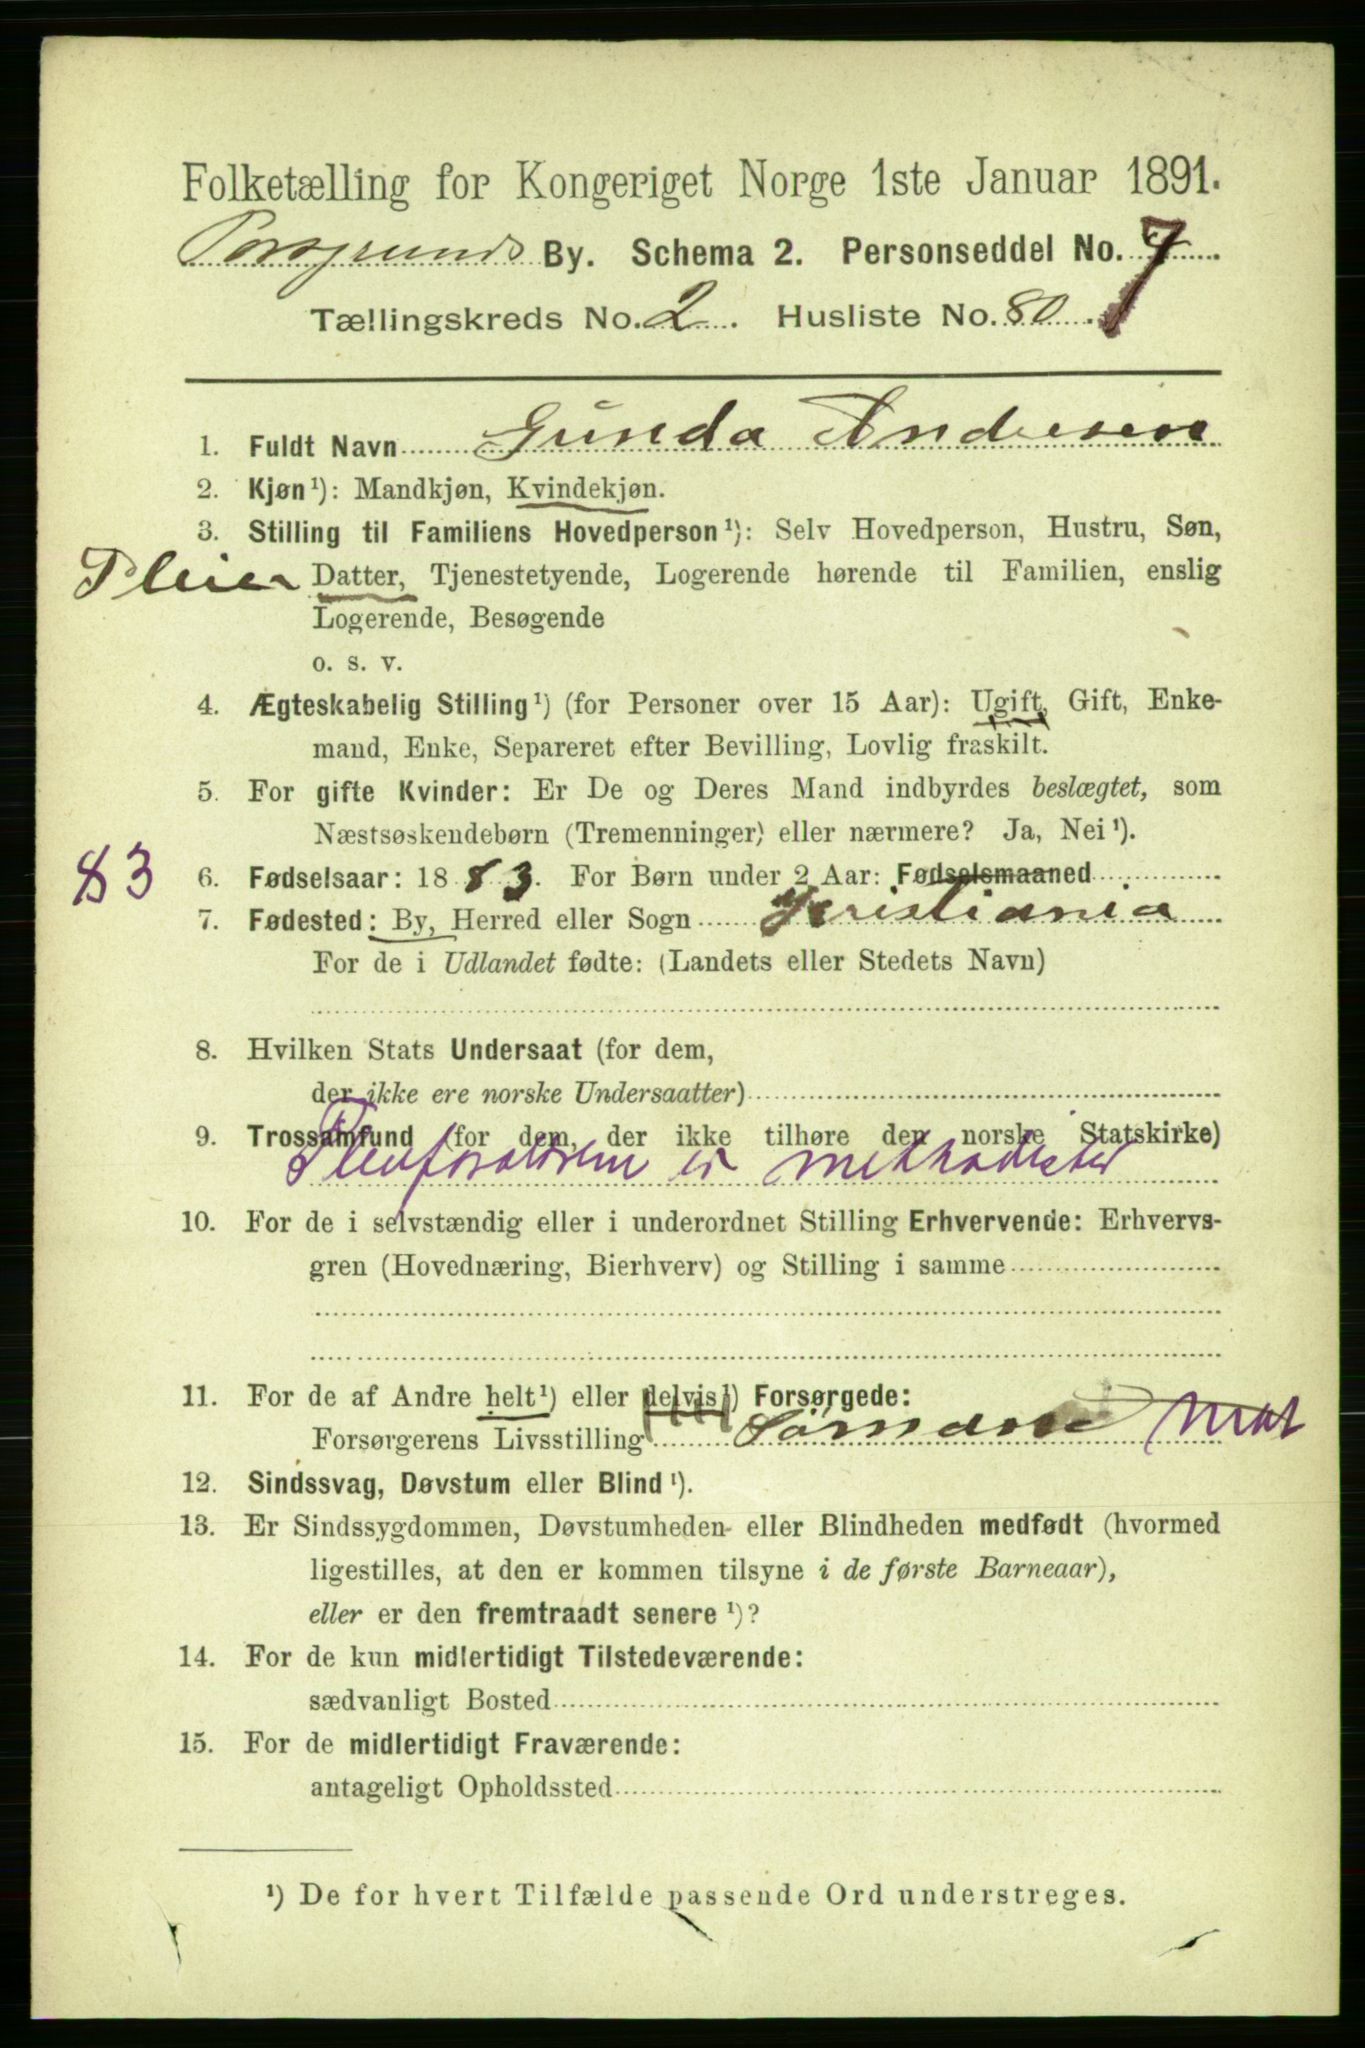 Folketælling for Kongeriget Norge 1ste Januar 1891.
Porsgrunds By. Schema 2. Personseddel No. 7
Tællingskreds No. 2. Husliste No. 80.
1. Fuldt Navn Gunda Andersen
2. Kjøn¹): Mandkjøn, Kvindekjøn.
3. Stilling til Familiens Hovedperson¹): Selv Hovedperson, Hustru, Søn,
Pleier Datter, Tjenestetyende, Logerende hørende til Familien, enslig
Logerende, Besøgende
o. s. v.
4. Ægteskabelig Stilling¹) (for Personer over 15 Aar): Ugift, Gift, Enke-
mand, Enke, Separeret efter Bevilling, Lovlig fraskilt.
5. For gifte Kvinder: Er De og Deres Mand indbyrdes beslægtet, som
Næstsøskendebørn (Tremenninger) eller nærmere? Ja, Nei¹).
83 6. Fødselsaar: 1883. For Børn under 2 Aar: Fødselsmaaned
7. Fødested: By, Herred eller Sogn Kristiania
For de i Udlandet fødte: (Landets eller Stedets Navn)
8. Hvilken Stats Undersaat (for dem,
der ikke ere norske Undersaatter)
9. Trossamfund (for dem, der ikke tilhøre den norske Statskirke)
Pleieforældrene er methodister
10. For de i selvstændig eller i underordnet Stilling Erhvervende: Erhvervs-
gren (Hovednæring, Bierhverv) og Stilling i samme
11. For de af Andre helt¹) eller delvis¹) Forsørgede:
Forsørgerens Livsstilling Sømand Mat
12. Sindssvag, Døvstum eller Blind¹).
13. Er Sindssygdommen, Døvstumheden eller Blindheden medfødt (hvormed
ligestilles, at den er kommen tilsyne i de første Barneaar),
eller er den fremtraadt senere¹)?
14. For de kun midlertidigt Tilstedeværende:
sædvanligt Bosted
15. For de midlertidigt Fraværende:
antageligt Opholdssted
¹) De for hvert Tilfælde passende Ord understreges.